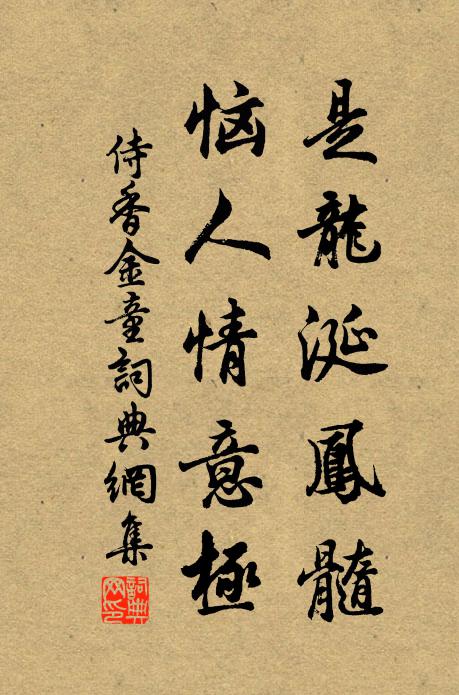 是龍涎鳳髓
恼人情意極
侍香金童詞典網集
詞典网印